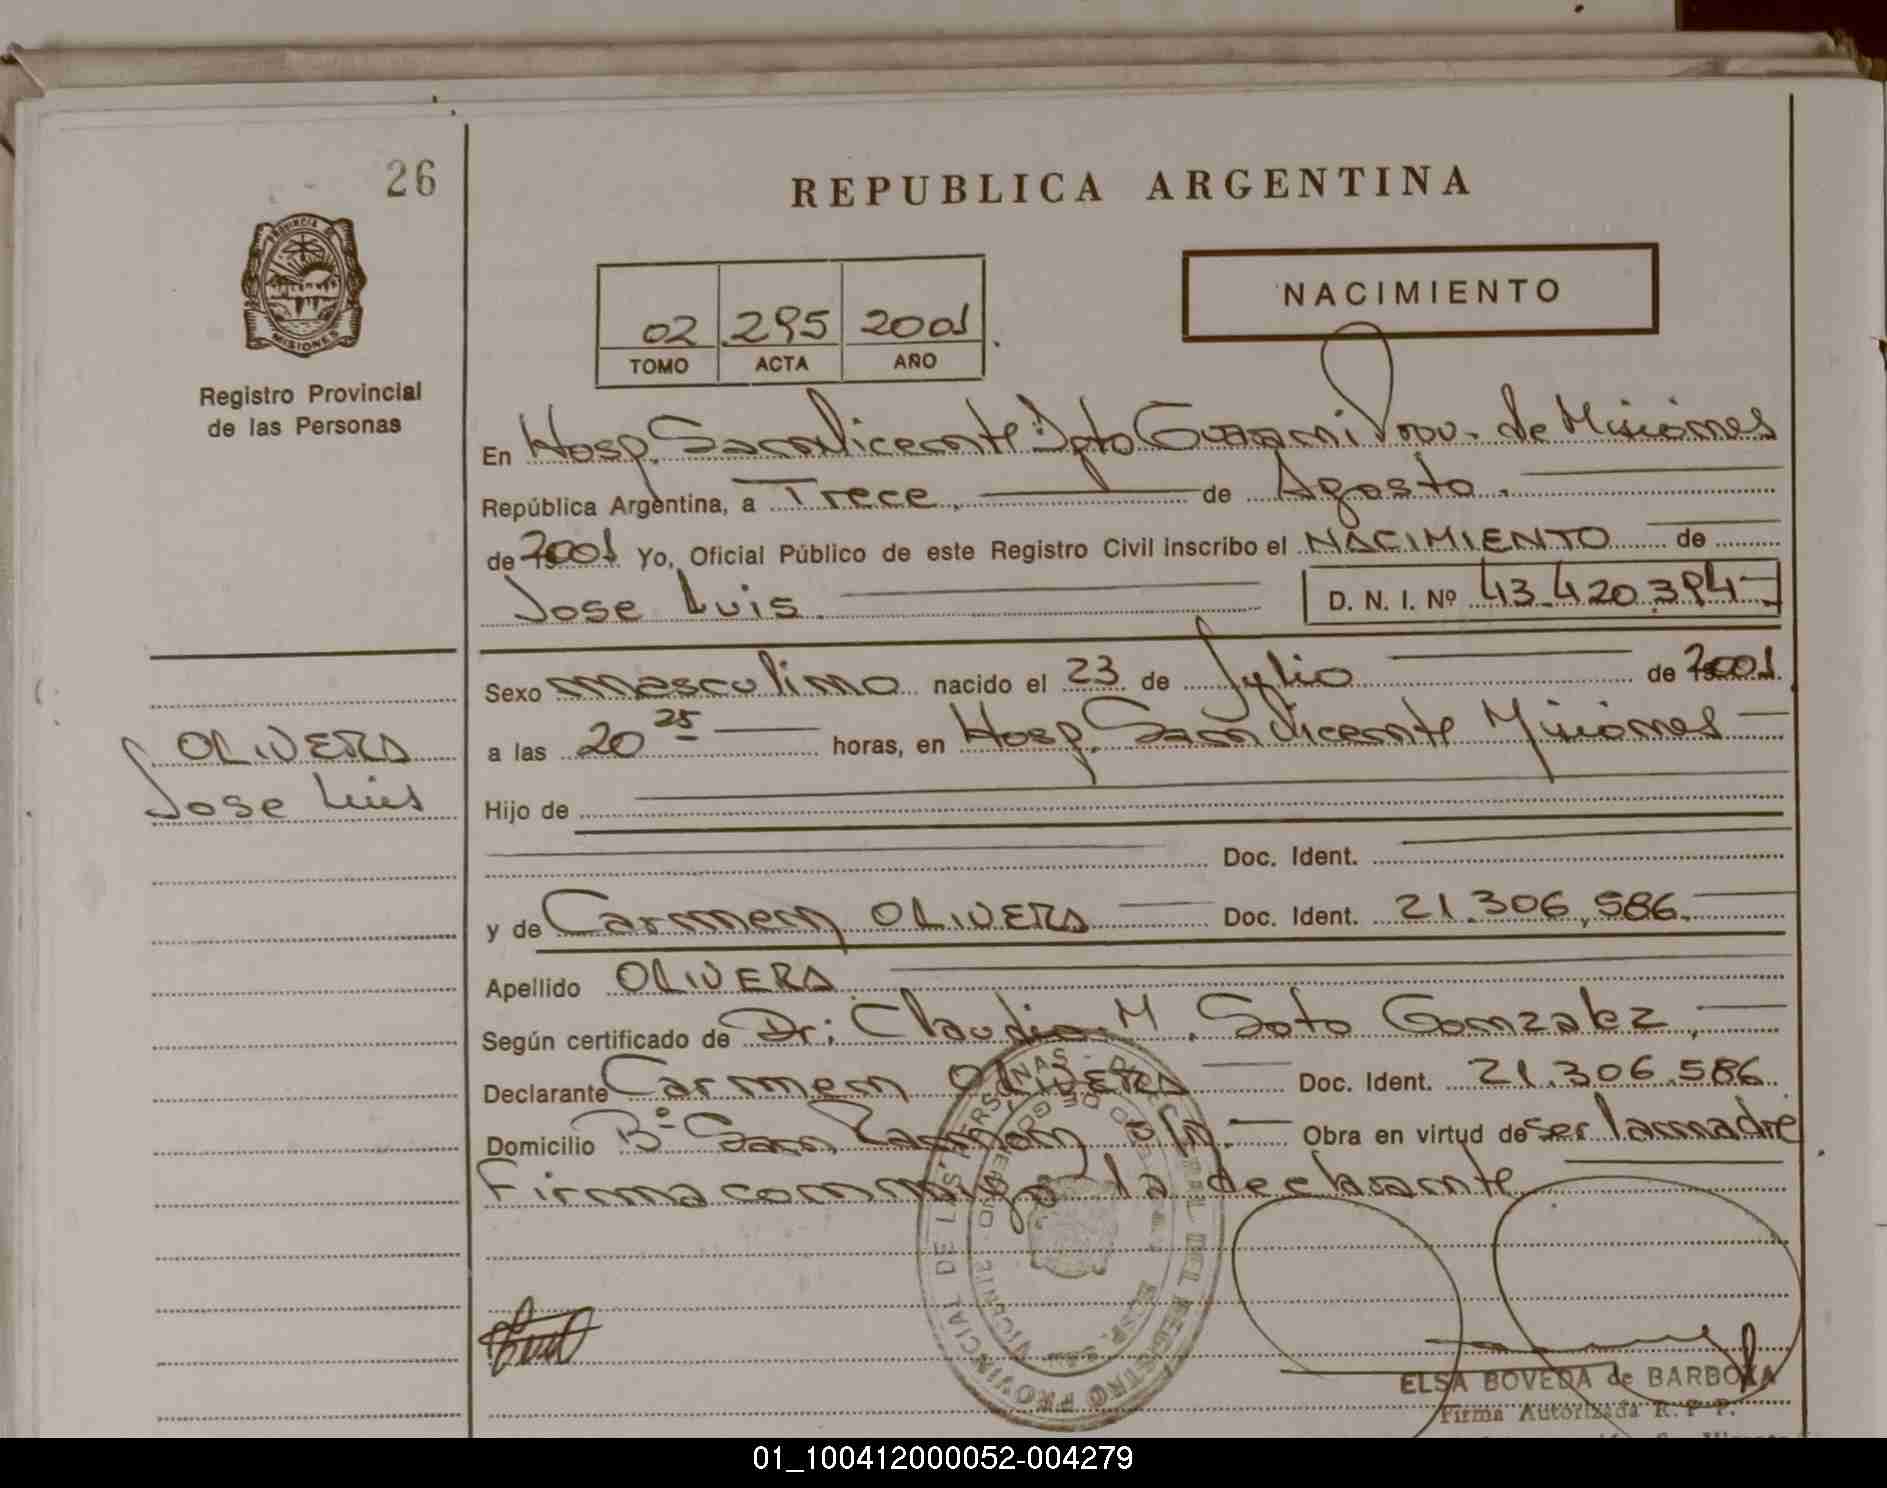 26
REPUBLICA ARGENTINA
PROVINCIA DE
MISIONES
Registro Provincial
de las Personas
NACIMIENTO
02 295 2001
TOMO ACTA AÑO
En Hosp. San Vicente Dpto Guarani Prov. de Misiones
República Argentina, a Trece de Agosto
de 2001 Yo, Oficial Público de este Registro Civil inscribo el NACIMIENTO de
Jose Luis. D. N. I. Nº 43.420.394
Sexo masculino nacido el 23 de Julio de 2001
a las 20 25 horas, en Hosp. San Vicente Misiones
OLIVERA
Jose Luis
Hijo de
Doc. Ident.
y de Carmen OLIVERA Doc. Ident. 21.306.586.
Apellido OLIVERA
Según certificado de Dr: Claudio M. Soto Gonzalez,
Declarante Carmen OLIVERA Doc. Ident. 21.306.586
Domicilio Bº San Ramon s/n. Obra en virtud de ser la madre
Firma conmigo la declarante
ELSA BOVEDA de BARBOZA
Firma Autorizada R. P. P.
01_100412000052-004279